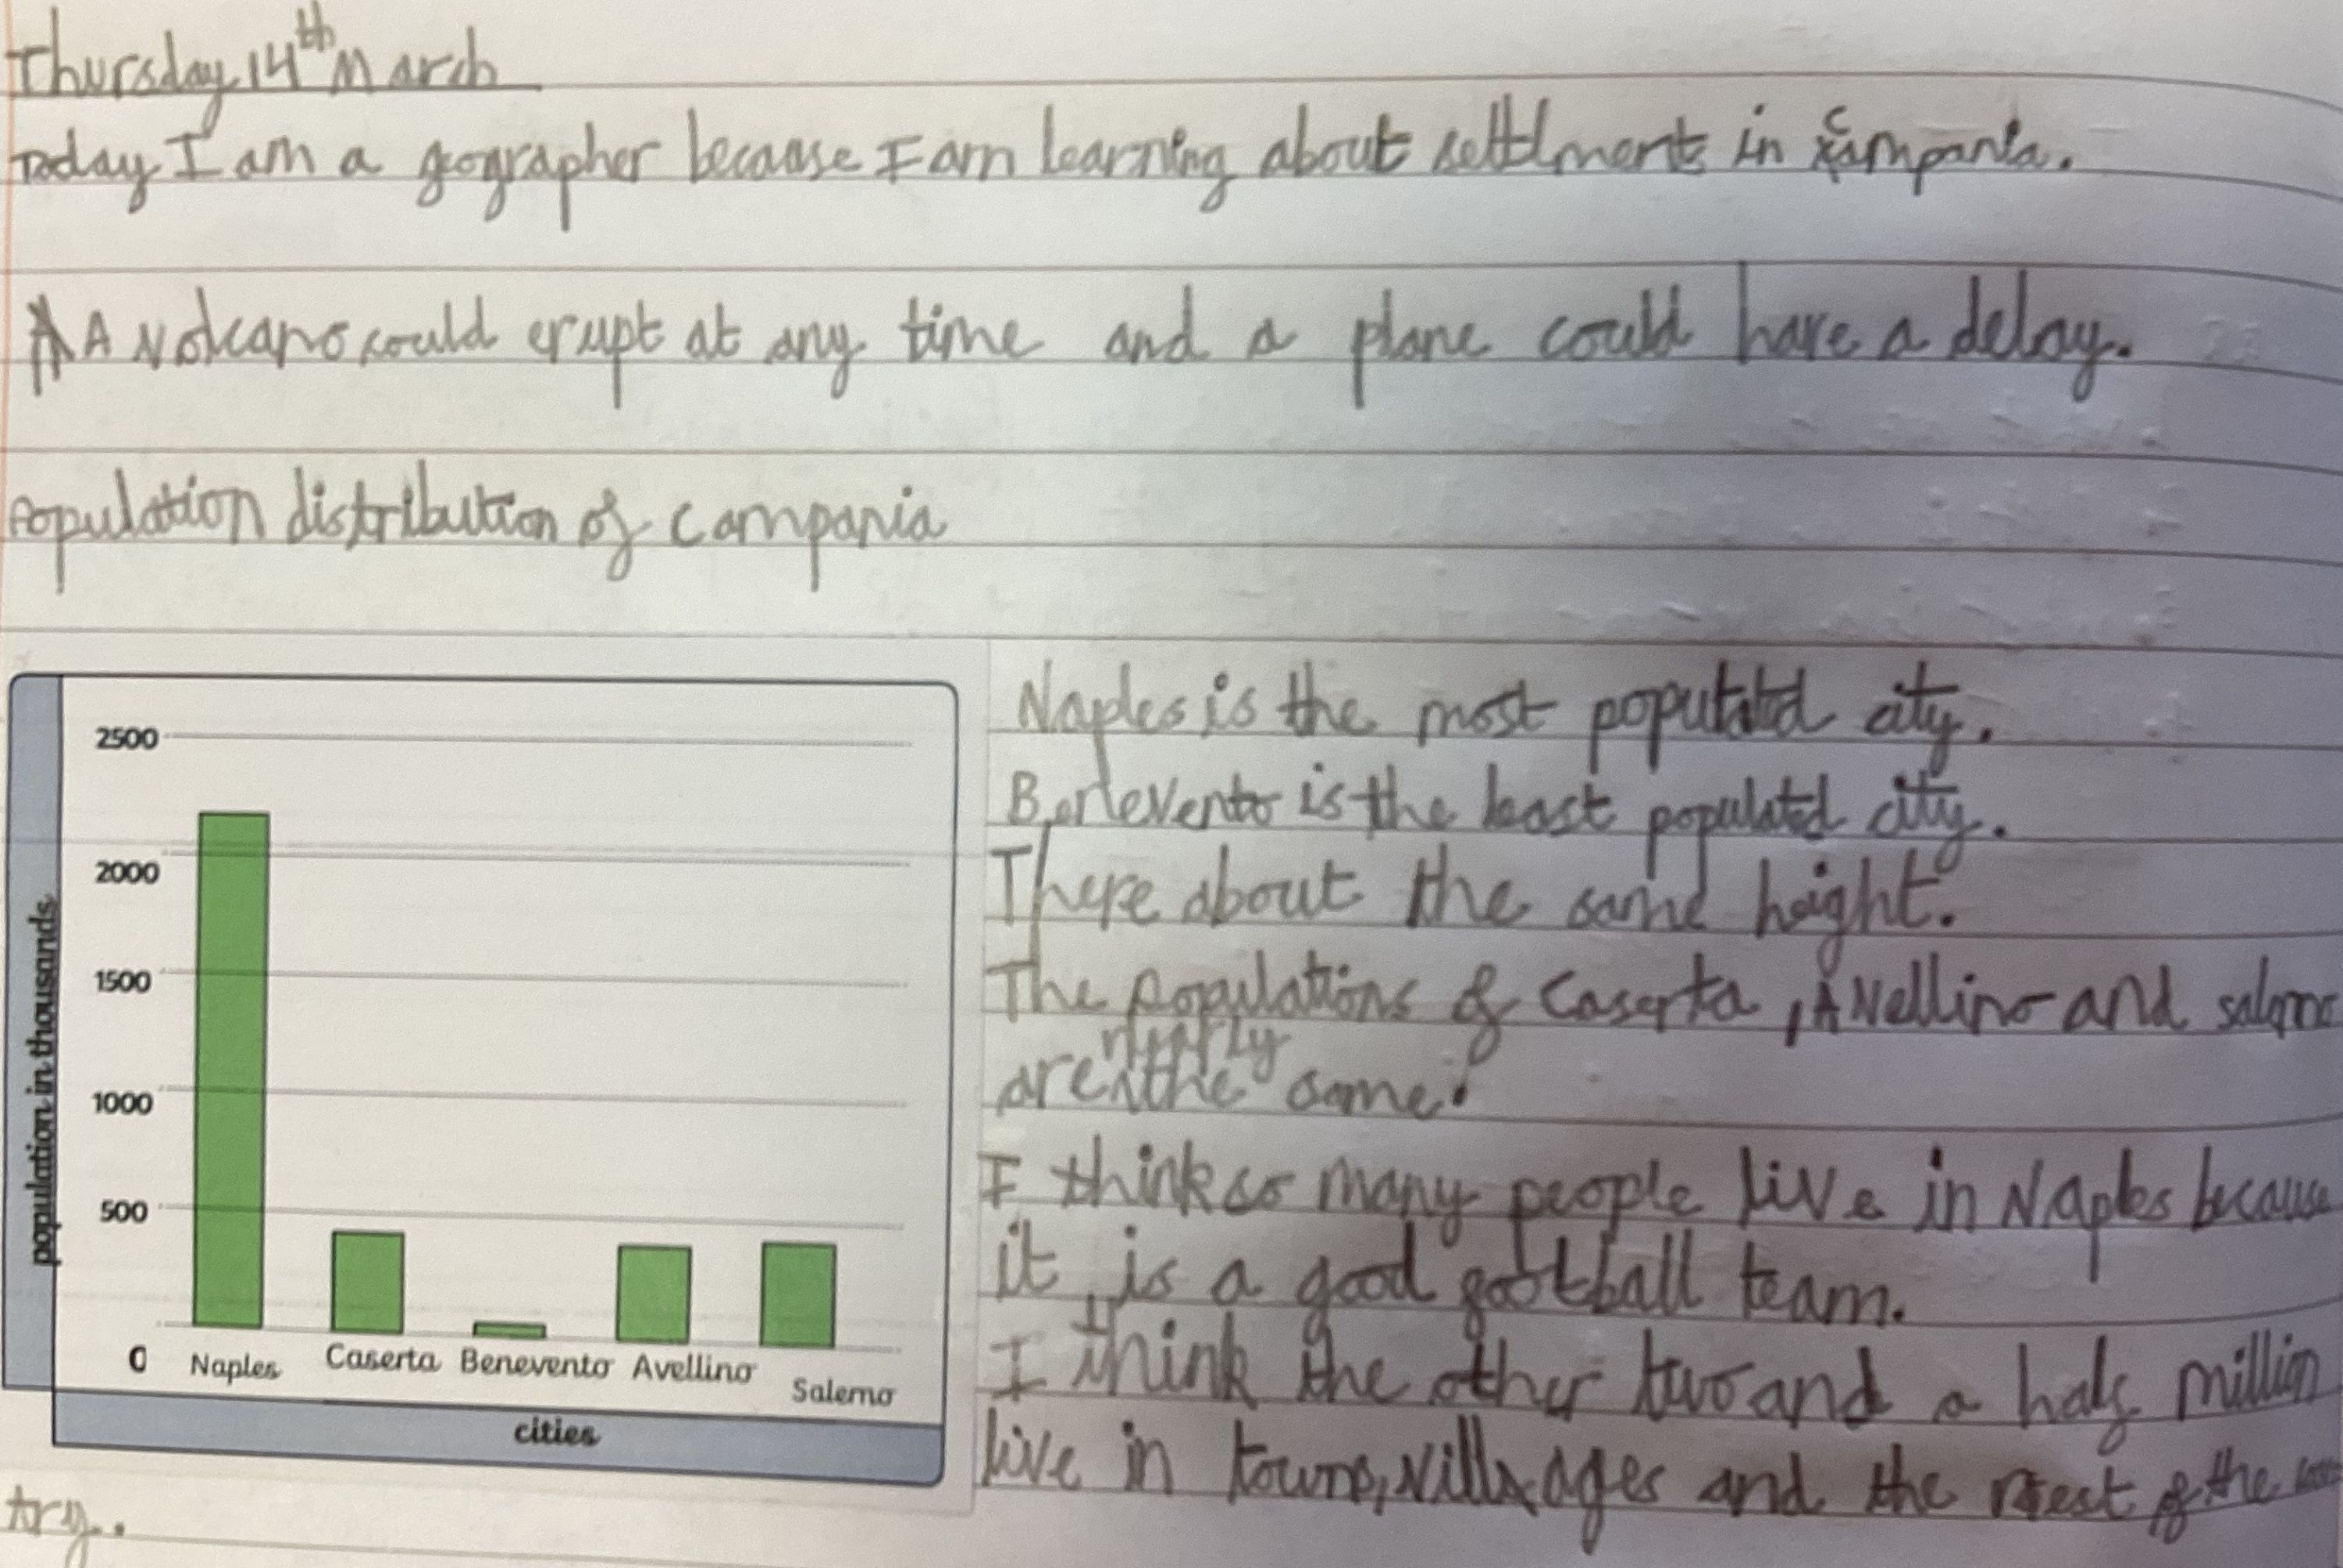 Thursday 14th March
Today I am a geographer because I am learning about settlments in Campania.
A volcano could erupt at any time and a plane could have a delay.
Population distribution of Campania
2500
2000
1500
1000
500
0
population in thousands
Naples Caserta Benevento Avellino Salerno
cities
Naples is the most populated city.
Benevento is the least populated city.
There about the same height.
The populations of Caserta, Avellino and salerno
are nearly the same.
I think so many people live in Naples because
it is a good football team.
I think the other two and a half million
live in towns, villages and the rest of the
try.